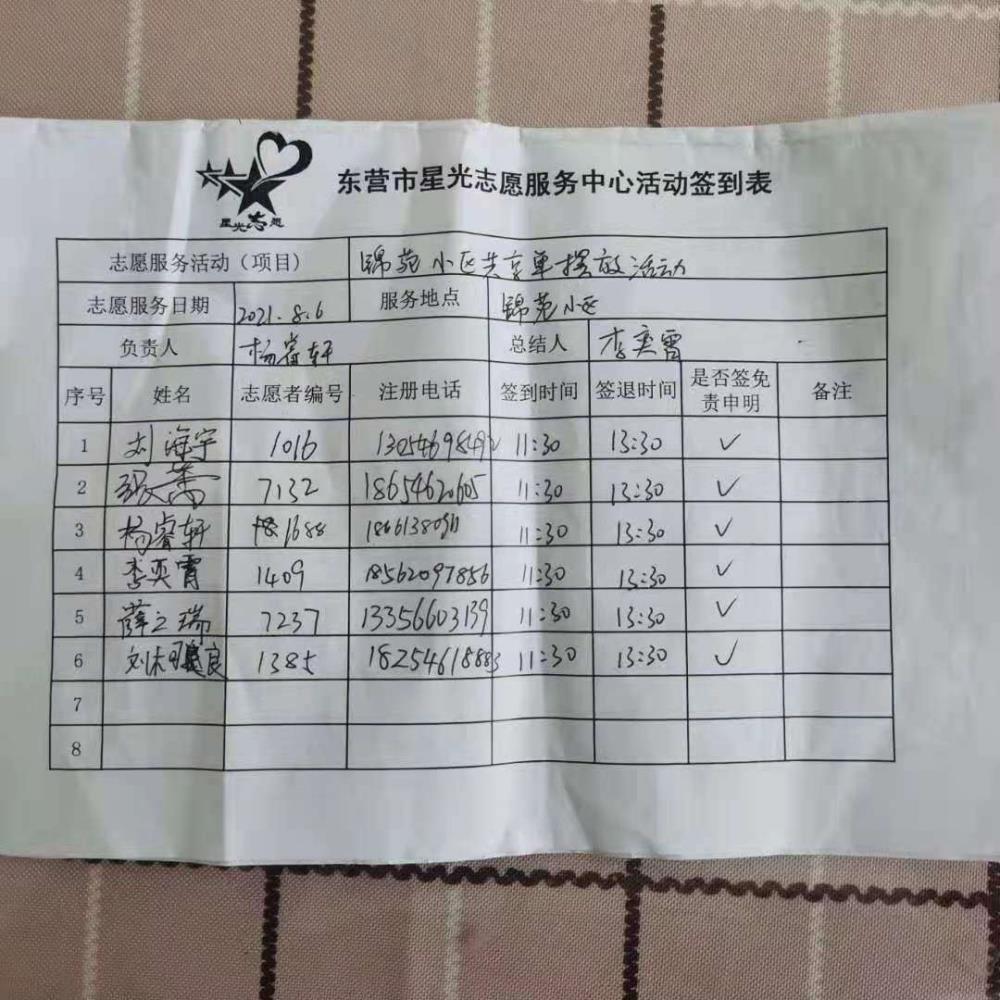 星光志愿
东营市星光志愿服务中心活动签到表
志愿服务活动（项目） 锦苑小区共享单摆放活动
志愿服务日期 2021.8.6 服务地点 锦苑小区
负责人 杨睿轩 总结人 李奕霄
序号 姓名 志愿者编号 注册电话 签到时间 签退时间 是否签免责申明 备注
1 刘海宇 1016 13054698492 11:30 13:30 ✓
2 张 7132 18654620605 11:30 13:30 ✓
3 杨睿轩 1688 11:30 13:30 ✓
4 李奕霄 1409 18562097856 11:30 13:30 ✓
5 薛之瑞 7237 13356603139 11:30 13:30 ✓
6 刘 良 1385 18254618883 11:30 13:30 ✓
7
8